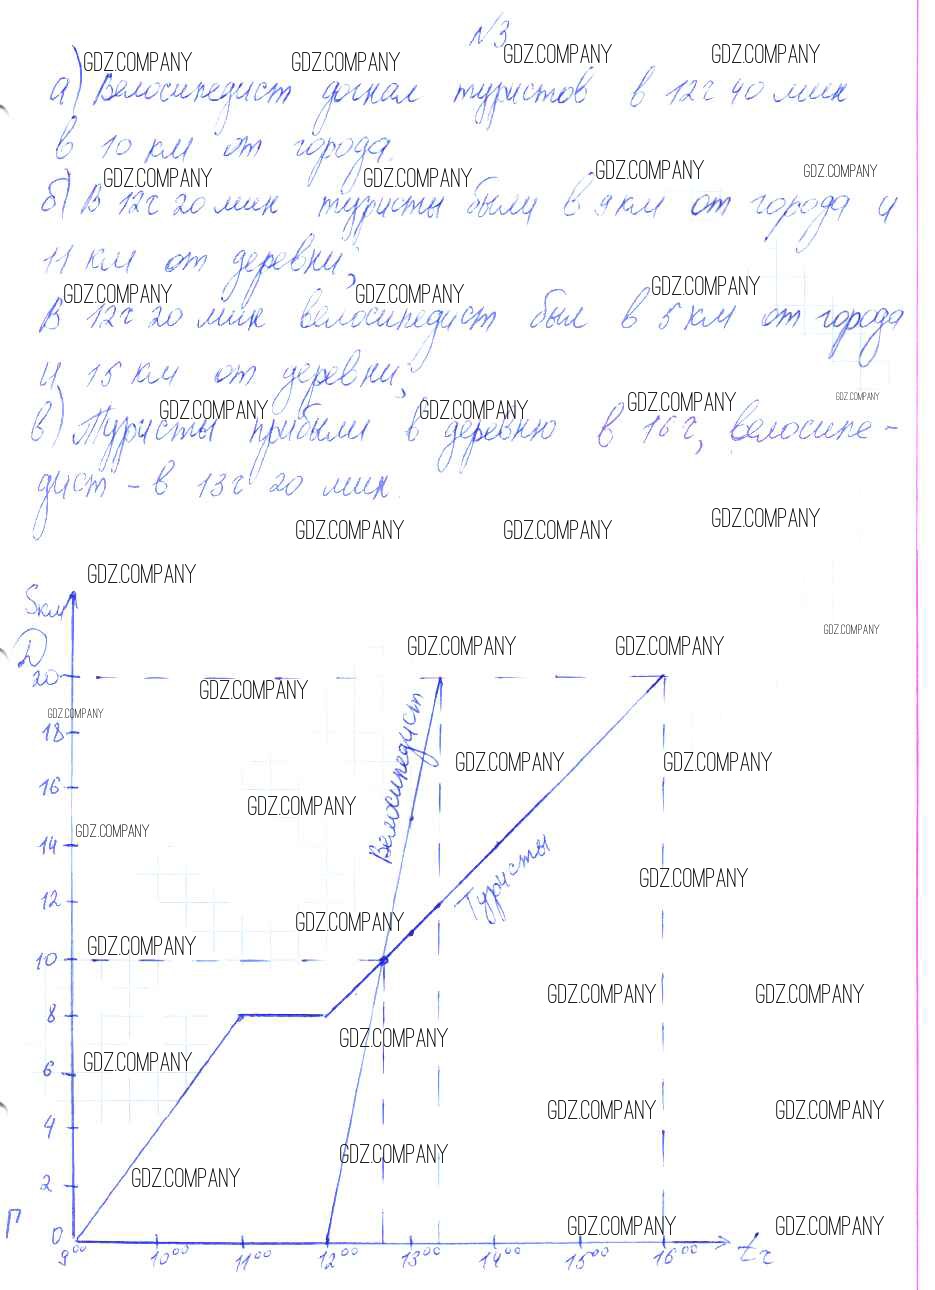 №3
GDZ.COMPANY GDZ.COMPANY GDZ.COMPANY GDZ.COMPANY
а) Велосипедист догнал туристов в 12ч 40 мин
в 10 км от города.
GDZ.COMPANY GDZ.COMPANY GDZ.COMPANY GDZ.COMPANY
б) В 12ч 20 мин туристы были в 9 км от города и
11 км от деревни;
GDZ.COMPANY GDZ.COMPANY GDZ.COMPANY
В 12ч 20 мин велосипедист был в 5 км от города
и 15 км от деревни;
GDZ.COMPANY GDZ.COMPANY GDZ.COMPANY GDZ.COMPANY
в) Туристы прибыли в деревню в 16 ч, велосипе-
дист - в 13ч 20 мин.
GDZ.COMPANY GDZ.COMPANY GDZ.COMPANY
GDZ.COMPANY
Sкм
GDZ.COMPANY
Д
GDZ.COMPANY GDZ.COMPANY
20
GDZ.COMPANY
GDZ.COMPANY
18
Велосипедист
GDZ.COMPANY GDZ.COMPANY
16
GDZ.COMPANY
GDZ.COMPANY
14
Туристы
GDZ.COMPANY
12
GDZ.COMPANY
GDZ.COMPANY
10
GDZ.COMPANY GDZ.COMPANY
8
GDZ.COMPANY
GDZ.COMPANY
6
GDZ.COMPANY GDZ.COMPANY
4
GDZ.COMPANY
GDZ.COMPANY
2
Г
GDZ.COMPANY GDZ.COMPANY
0
9⁰⁰ 10⁰⁰ 11⁰⁰ 12⁰⁰ 13⁰⁰ 14⁰⁰ 15⁰⁰ 16⁰⁰ tч